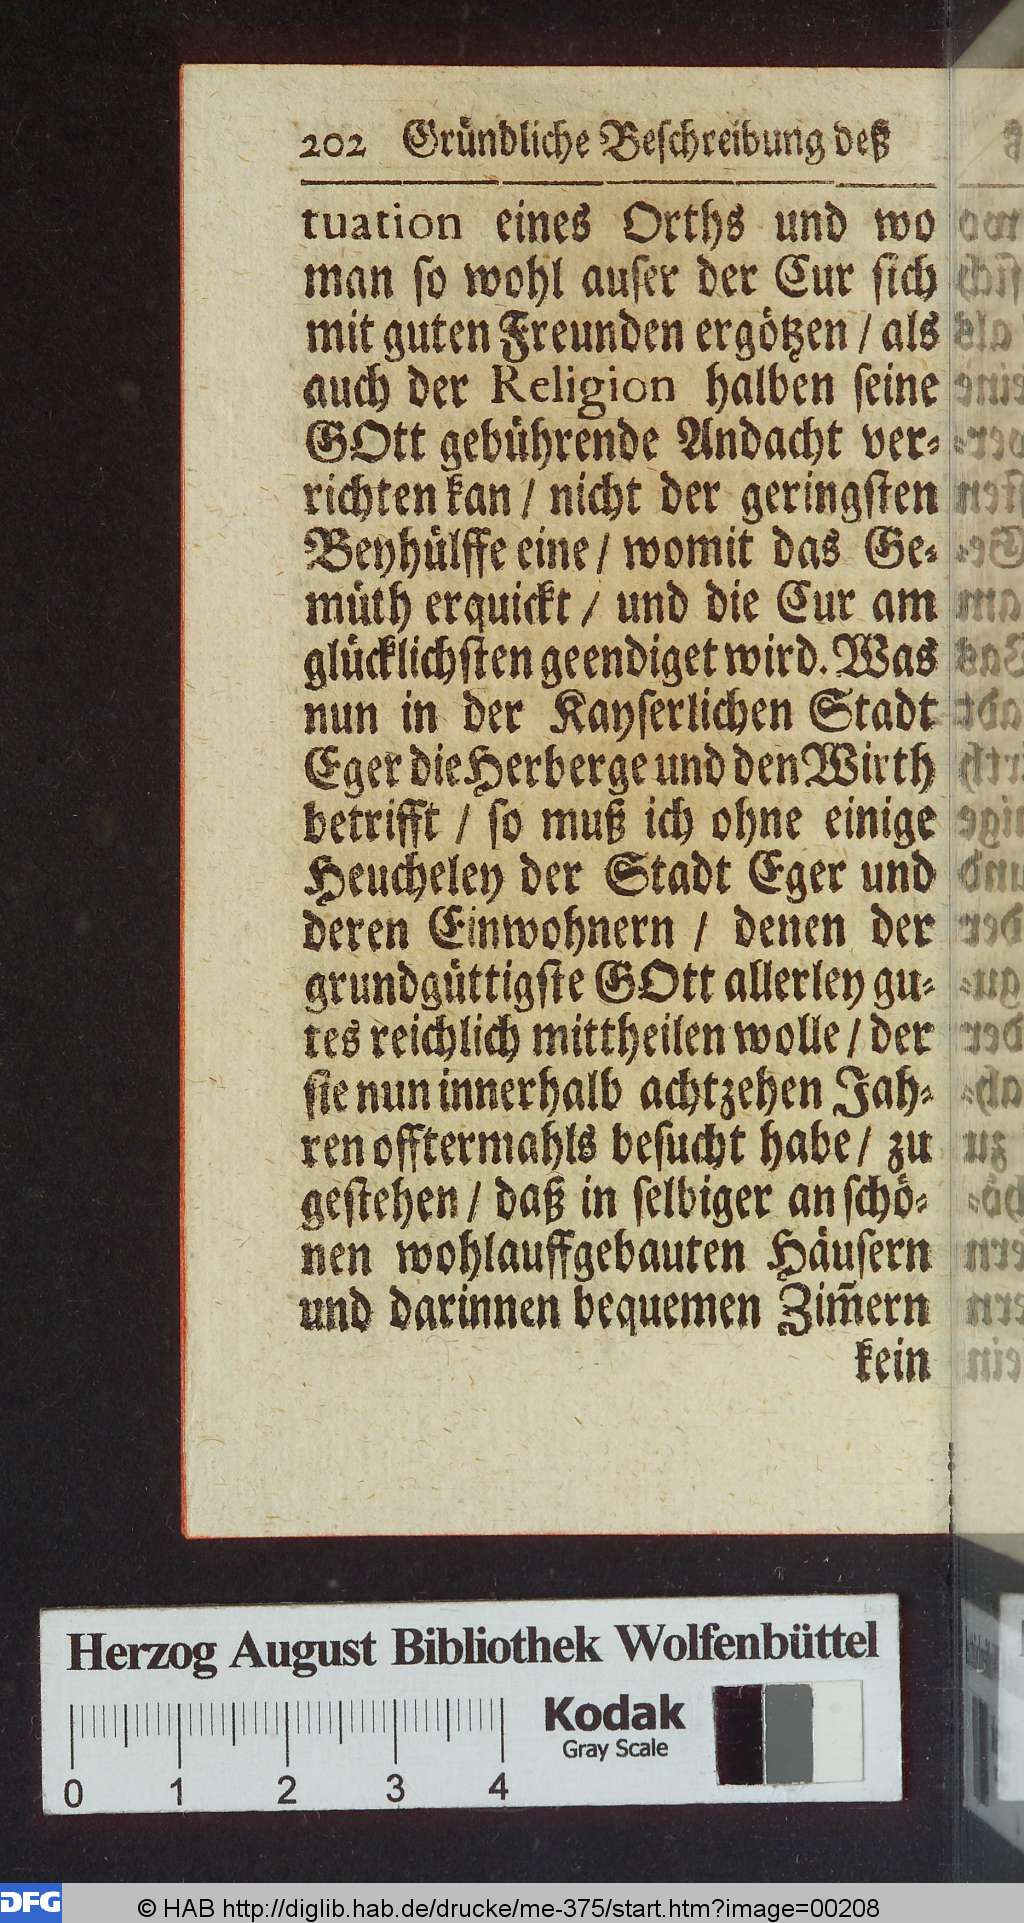 202 Gründliche Beschreibung deß
tuation eines Orths und wo
man so wohl auser der Cur sich
mit guten Freunden ergötzen / als
auch der Religion halben seine
GOtt gebührende Andacht ver-
richten kan / nicht der geringsten
Beyhülffe eine / womit das Ge-
müth erquickt / und die Cur am
glücklichsten geendiget wird. Was
nun in der Kayserlichen Stadt
Eger die Herberge und den Wirth
betrifft / so muß ich ohne einige
Heucheley der Stadt Eger und
deren Einwohnern / denen der
grundgüttigste GOtt allerley gu-
tes reichlich mittheilen wolle / der
sie nun innerhalb achtzehen Jah-
ren offtermahls besucht habe / zu
gestehen / daß in selbiger an schö-
nen wohlauffgebauten Häusern
und darinnen bequemen Zim̄ern
kein
Herzog August Bibliothek Wolfenbüttel
Kodak
Gray Scale
0 1 2 3 4
DFG © HAB http://diglib.hab.de/drucke/me-375/start.htm?image=00208